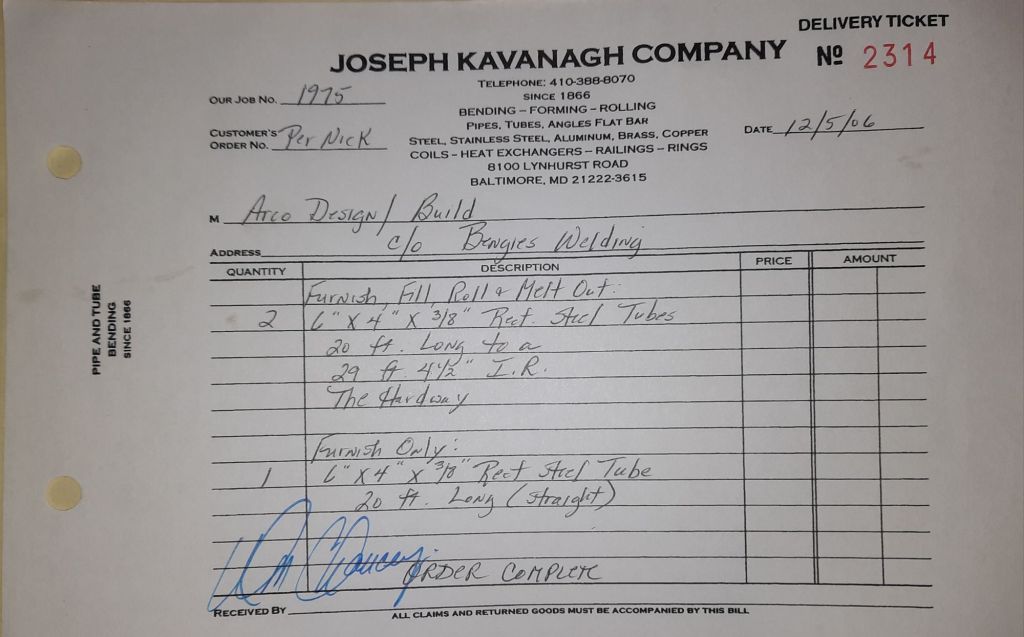 DELIVERY TICKET
JOSEPH KAVANAGH COMPANY
Nº 2314
TELEPHONE: 410-388-8070
SINCE 1866
OUR JOB NO. 1975
BENDING – FORMING – ROLLING
PIPES, TUBES, ANGLES FLAT BAR
CUSTOMER'S ORDER NO. Per Nick
STEEL, STAINLESS STEEL, ALUMINUM, BRASS, COPPER
DATE 12/5/06
COILS – HEAT EXCHANGERS – RAILINGS – RINGS
8100 LYNHURST ROAD
BALTIMORE, MD 21222-3615
M Arco Design/ Build
ADDRESS c/o Bengies Welding
QUANTITY DESCRIPTION PRICE AMOUNT
Furnish, Fill, Roll & Melt Out:
2 6" X 4" X 3/8" Rect. Steel Tubes
20 ft. Long to a
29 ft 4 1/2" I.R.
The Hardway
Furnish Only:
1 6" X 4" X 3/8" Rect Steel Tube
20 ft. Long (straight)
ORDER COMPLETE
RECEIVED BY
ALL CLAIMS AND RETURNED GOODS MUST BE ACCOMPANIED BY THIS BILL
PIPE AND TUBE
BENDING
SINCE 1866